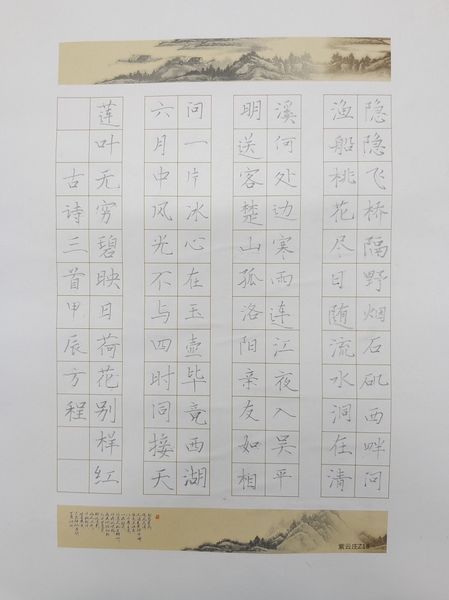 隐隐飞桥隔野烟石矶西畔问
渔船桃花尽日随流水洞在清
溪何处边寒雨连江夜入吴平
明送客楚山孤洛阳亲友如相
问一片冰心在玉壶毕竟西湖
六月中风光不与四时同接天
莲叶无穷碧映日荷花别样红
古诗三首甲辰方程
紫云庄Z18